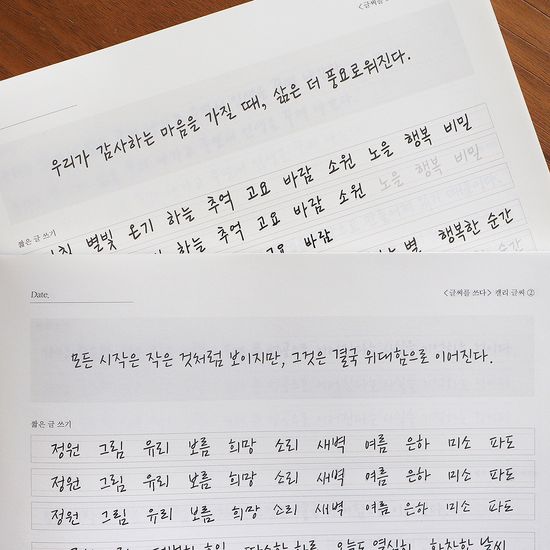 <글씨를
우리가 감사하는 마음을 가질 때, 삶은 더 풍요로워진다.
짧은 글 쓰기
별빛 온기 하늘 추억 고요 바람 소원 노을 행복 비밀
하늘 추억 고요 바람 소원 노을 행복 비밀
고요 바람
별 행복한 순간
순간
Date.
<글씨를 쓰다> 캘리 글씨 ②
모든 시작은 작은 것처럼 보이지만, 그것은 결국 위대함으로 이어진다.
짧은 글 쓰기
정원 그림 유리 보름 희망 소리 새벽 여름 은하 미소 파도
정원 그림 유리 보름 희망 소리 새벽 여름 은하 미소 파도
정원 그림 유리 보름 희망 소리 새벽 여름 은하 미소 파도
따스한 하루 오늘도 열심히 화창한 날씨